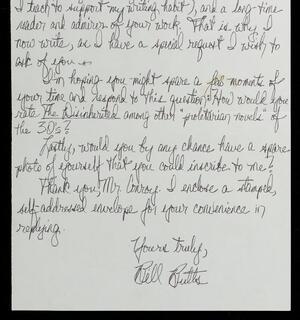 I teach to support my writing habit), and a long-time
reader and admirer of your work. That is why I
now write, as I have a special request I wish to
ask of you.
I'm hoping you might spare a few moments of
your time and respond to this question: How would you
rate The Disinherited among other "prolitarian novels" of
the 30s?
Lastly, would you by any chance have a spare
photo of yourself that you could inscribe to me?
Thank you, Mr. Conroy. I enclose a stamped,
self-addressed envelope for your convenience in
replying.
Yours truly,
Bill Butts